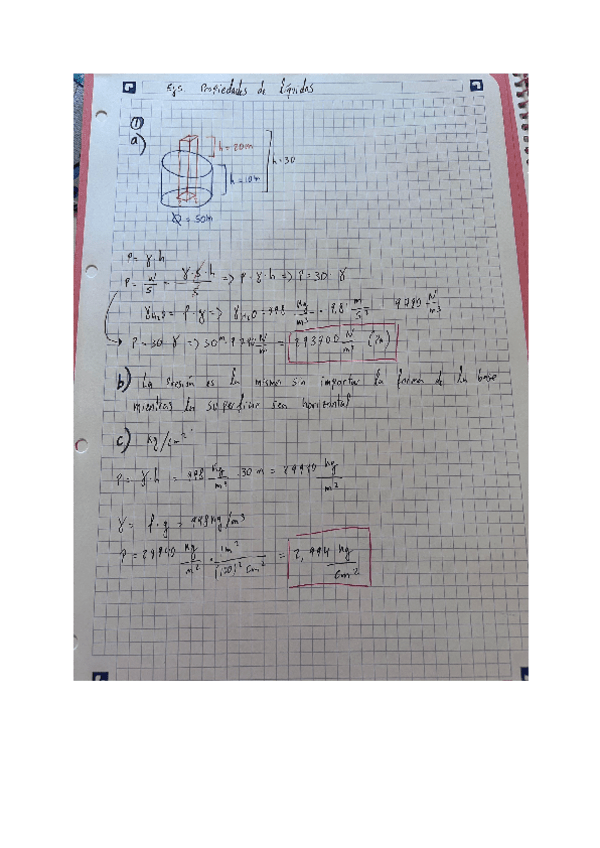 Ejs. Propiedades de líquidos
①
a)
h = 20m
h = 10m
h = 30
Ø = 50m
P = γ · h
P = W/S = γ·S·h/S => P = γ·h => P = 30 · γ
γH₂O = ρ · g => γH₂O = 998 kg/m³ · 9,81 m/s² = 9790 N/m³
P = 30 · γ => 30 m ·
b) La presión es la misma sin importar la forma de la base
mientras la superficie sea horizontal
c) kg/cm²
P = γ · h = 998 kg/m³ · 30 m = 29940 kg/m²
γ = ρ · g = 998 kg/m³
P = 29940 kg/m² · 1m²/(100)² cm² = 2,994 kg/cm²